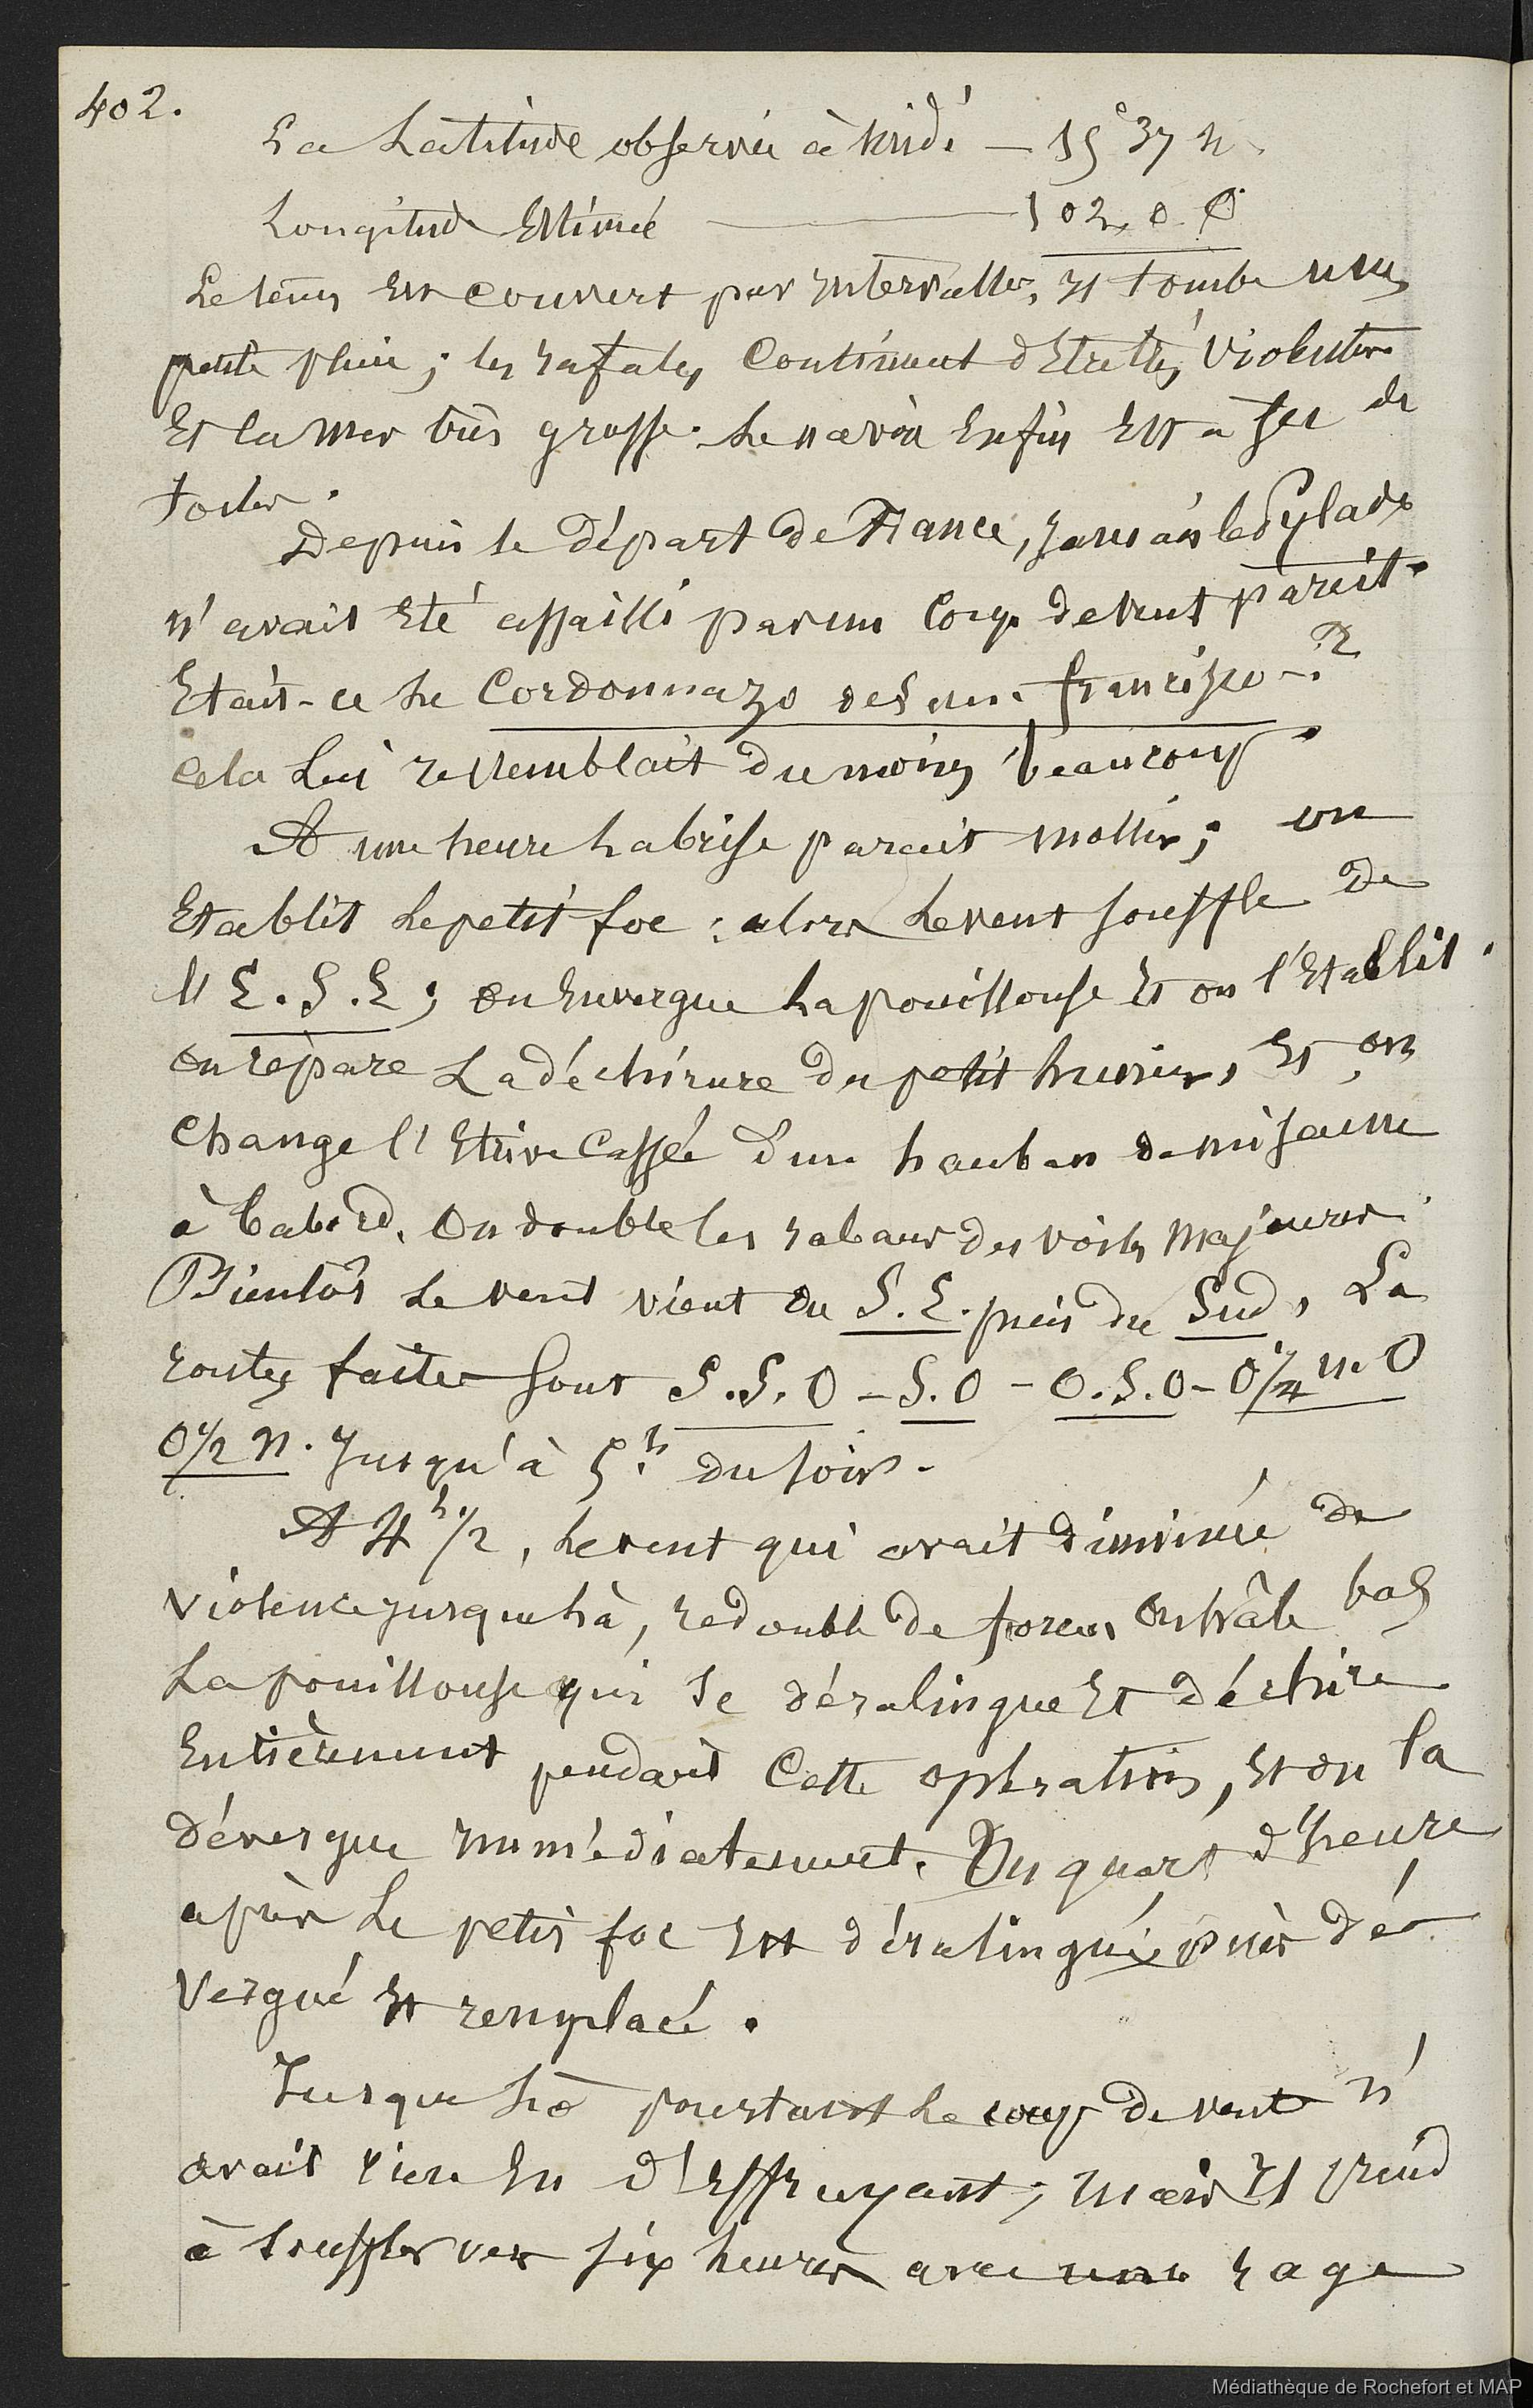 402.
La Latitude observée à midi — 15° 37 N.
Longitude Estimée — 102. 0. O
Le tems Est couvert par Intervalles, Il tombe une
petite pluie ; les rafales Continuent d'Etre très Violentes
Et la mer très grosse. Le navire Enfin Est à sec de
toiles.
Depuis le départ de France, jamais le Pylade
n'avait Eté assailli par un Coup de vent pareil.
Etait-ce le Cordonnazo de San francisco - ?
Cela Lui ressemblait du moins beaucoup.
A une heure la brise parait mollir ; on
Etablit le petit foc : alors le vent souffle de
l'E.S.E ; on Envergue la pouillouse Et on l'Etablit.
on répare La déchirure du petit hunier, Et on
Change l'Etrive Cassée d'un hauban de misaine
à babord. On double les rabans des voiles majeures.
Bientôt le vent vient du S.E. puis du Sud, La
routes faites sont S.S.O - S.O - O.S.O - O ¼ N.O
O ½ N. Jusqu'à 5.h du soir.
A 4h ½, le vent qui avait diminué de
violence jusque là, redouble de force, on hâle bas
La pouillouse qui se déralingue Et déchire
Entièrement pendant Cette opération, Et on la
dévergue Immédiatement. Un quart d'heure
après le petit foc Est déralingué puis dé-
vergué Et remplacé.
Jusque là pourtant le coup de vent n'
avait rien Eu d'Effrayant ; mais Il prend
à souffler vers six heures avec une rage
Médiathèque de Rochefort et MAP